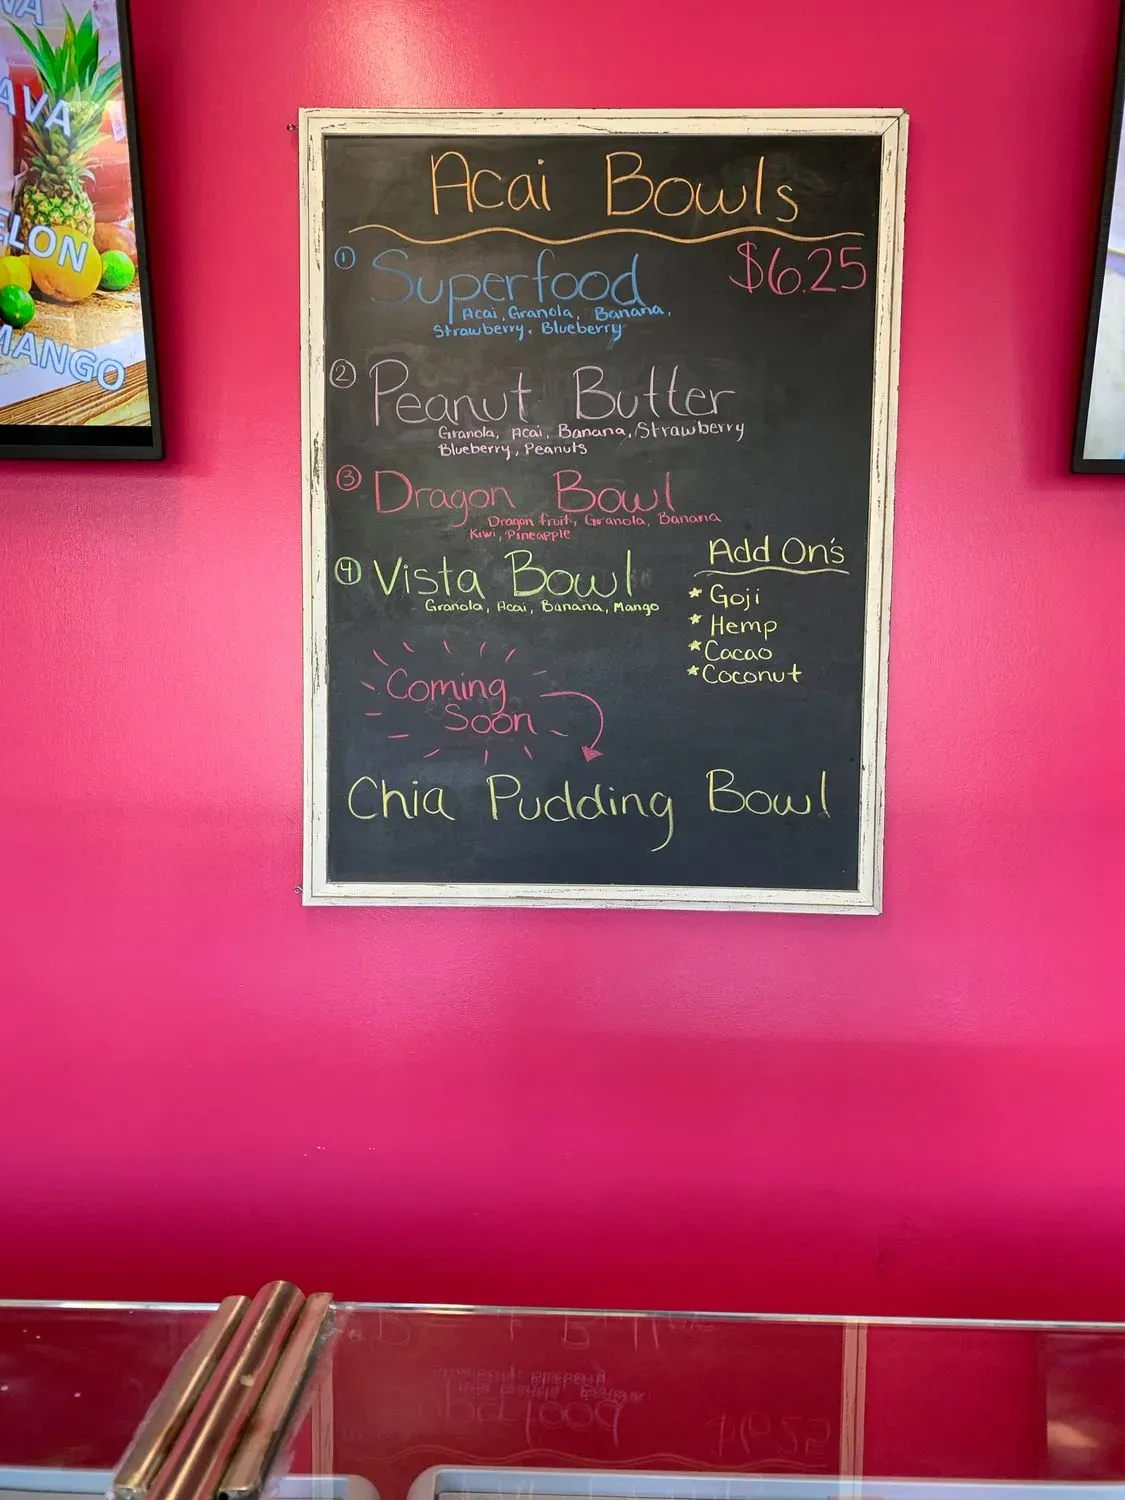 AVA
ELON
MANGO
Acai Bowls
$6.25
① Superfood
Acai, Granola, Banana,
Strawberry, Blueberry
② Peanut Butter
Granola, Acai, Banana, Strawberry
Blueberry, Peanuts
③ Dragon Bowl
Dragon fruit, Granola, Banana
Kiwi, Pineapple
④ Vista Bowl
Granola, Acai, Banana, Mango
Add On's
* Goji
* Hemp
* Cacao
* Coconut
Coming
Soon
Chia Pudding Bowl